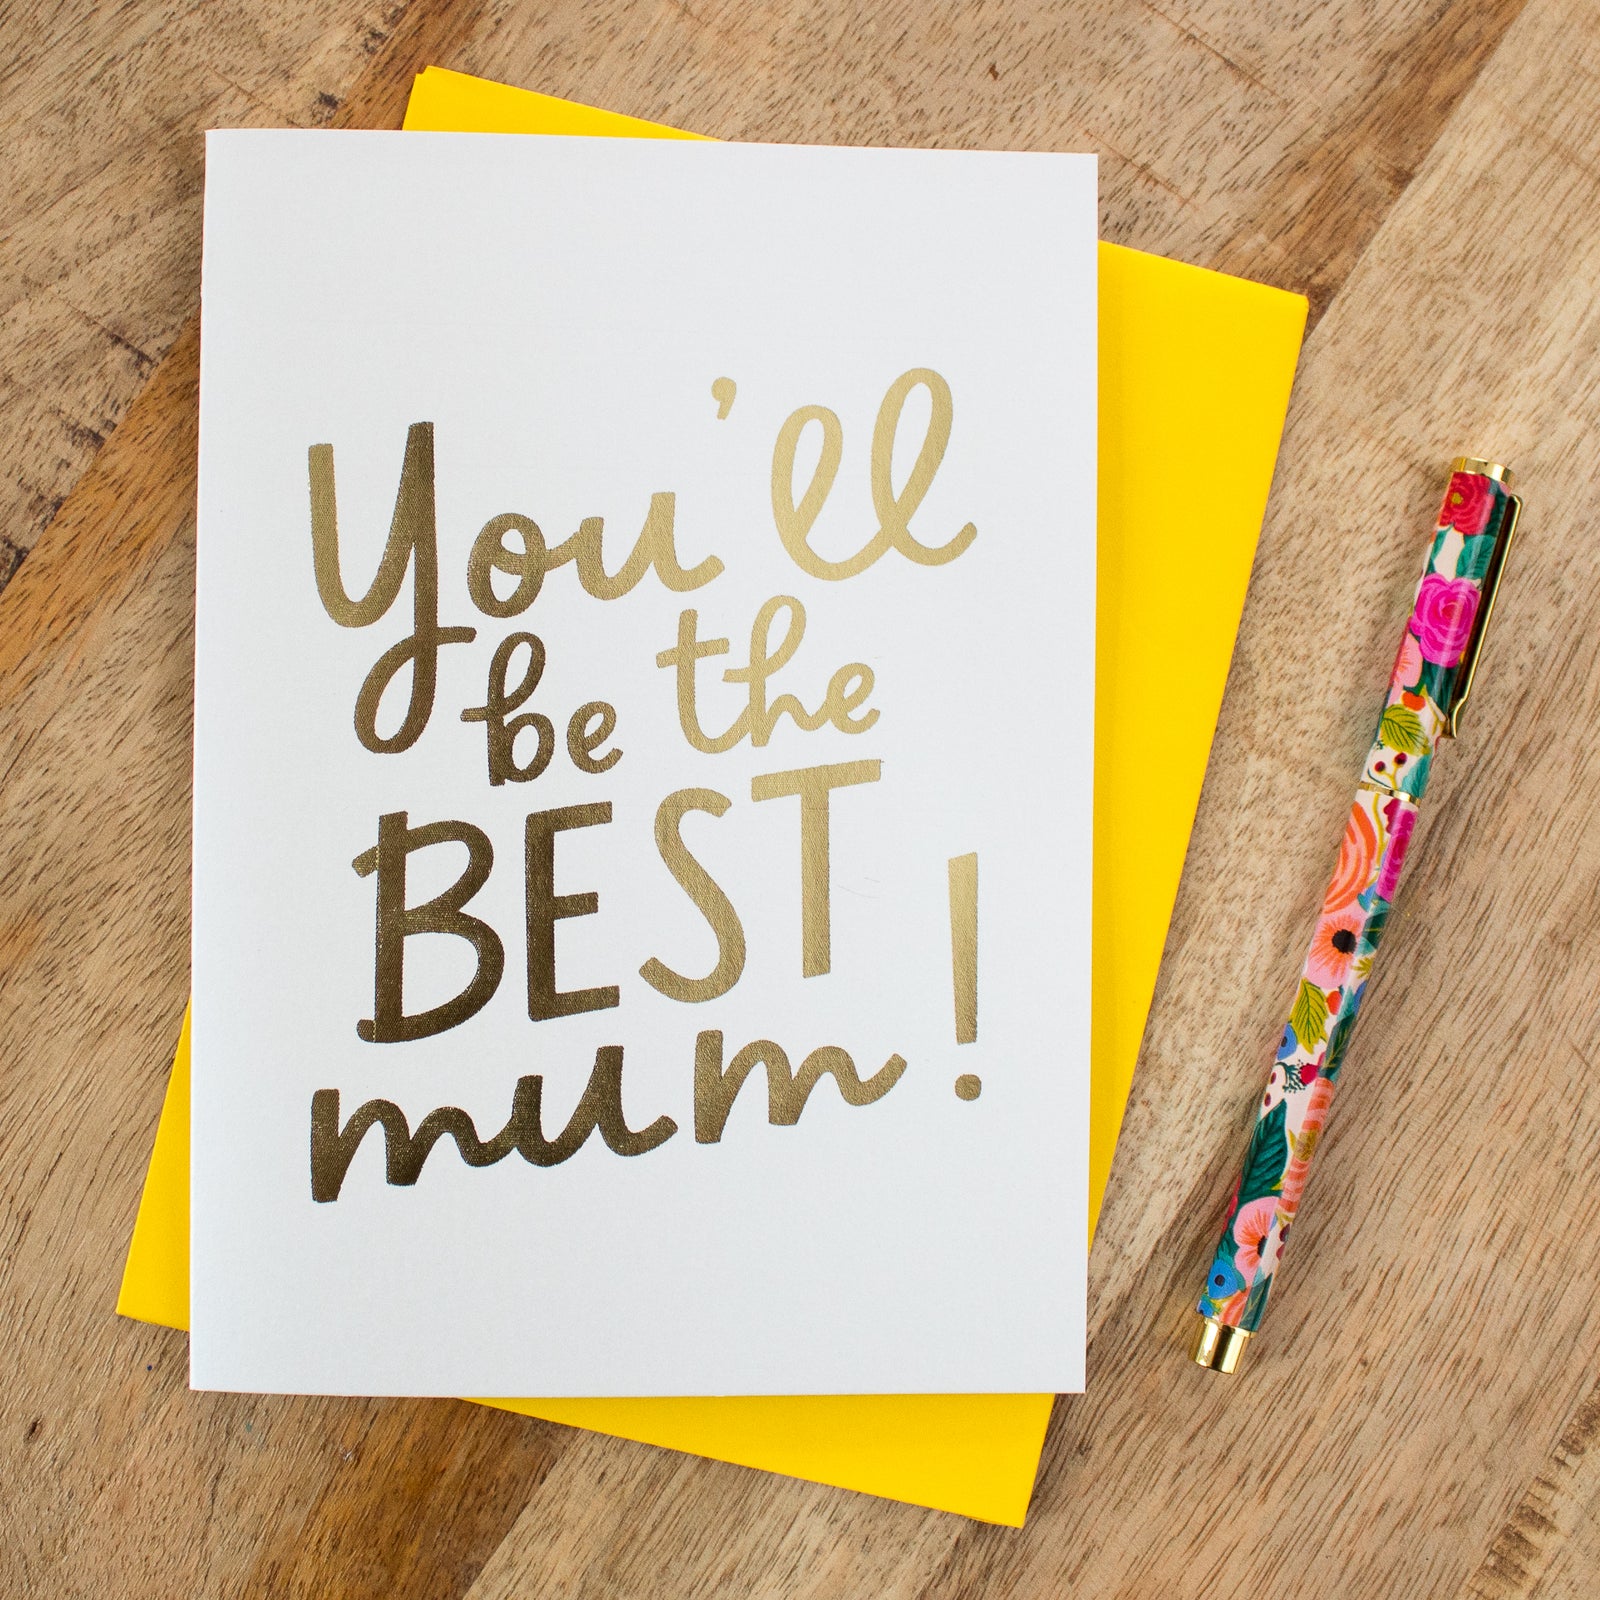 You'll
be the
BEST
mum!